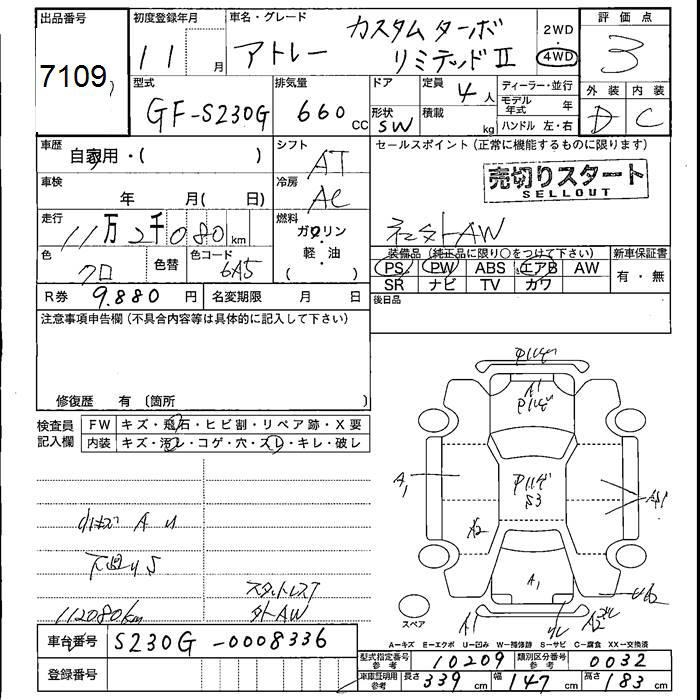 出品番号
7109
初度登録年月
11 月
車名・グレード
アトレー
カスタム ターボ
リミテッドⅡ
2WD
4WD
評価点
3
型式
GF-S230G
排気量
660 cc
ドア
形状
SW
定員
4人
積載
kg
ディーラー・並行
モデル年式 年
ハンドル 左・右
外装
D
内装
C
車歴
自家用・( )
シフト
AT
セールスポイント(正常に機能するものに限ります)
売切りスタート
SELLOUT
車検
年 月( 日)
冷房
AC
走行
11万2千080km
燃料
ガソリン
軽・油
( )
色
クロ
色替
色コード
6A5
装備品(純正品に限り○をつけて下さい)
PS PW ABS エアB AW
SR ナビ TV カワ
新車保証書
有・無
R券 9.880 円
名変期限 月 日
後日品
注意事項申告欄(不具合内容等は具体的に記入して下さい)
修復歴 有 〔箇所 〕
検査員
記入欄
FW
キズ・飛石・ヒビ割・リペア跡・X要
内装
キズ・汚レ・コゲ・穴・スレ・キレ・破レ
A1
A1
S3
A2
A1
A1
スタットレス
外AW
112080km
スペア
A-キズ E-エクボ U-凹み W-補修跡 S-サビ C-腐食 XX-交換済
車台番号
S230G-0008336
登録番号
型式指定番号
参考
10209
類別区分番号
参考
0032
車庫証明用
参考
長さ 339 cm
幅 147 cm
高さ 183 cm